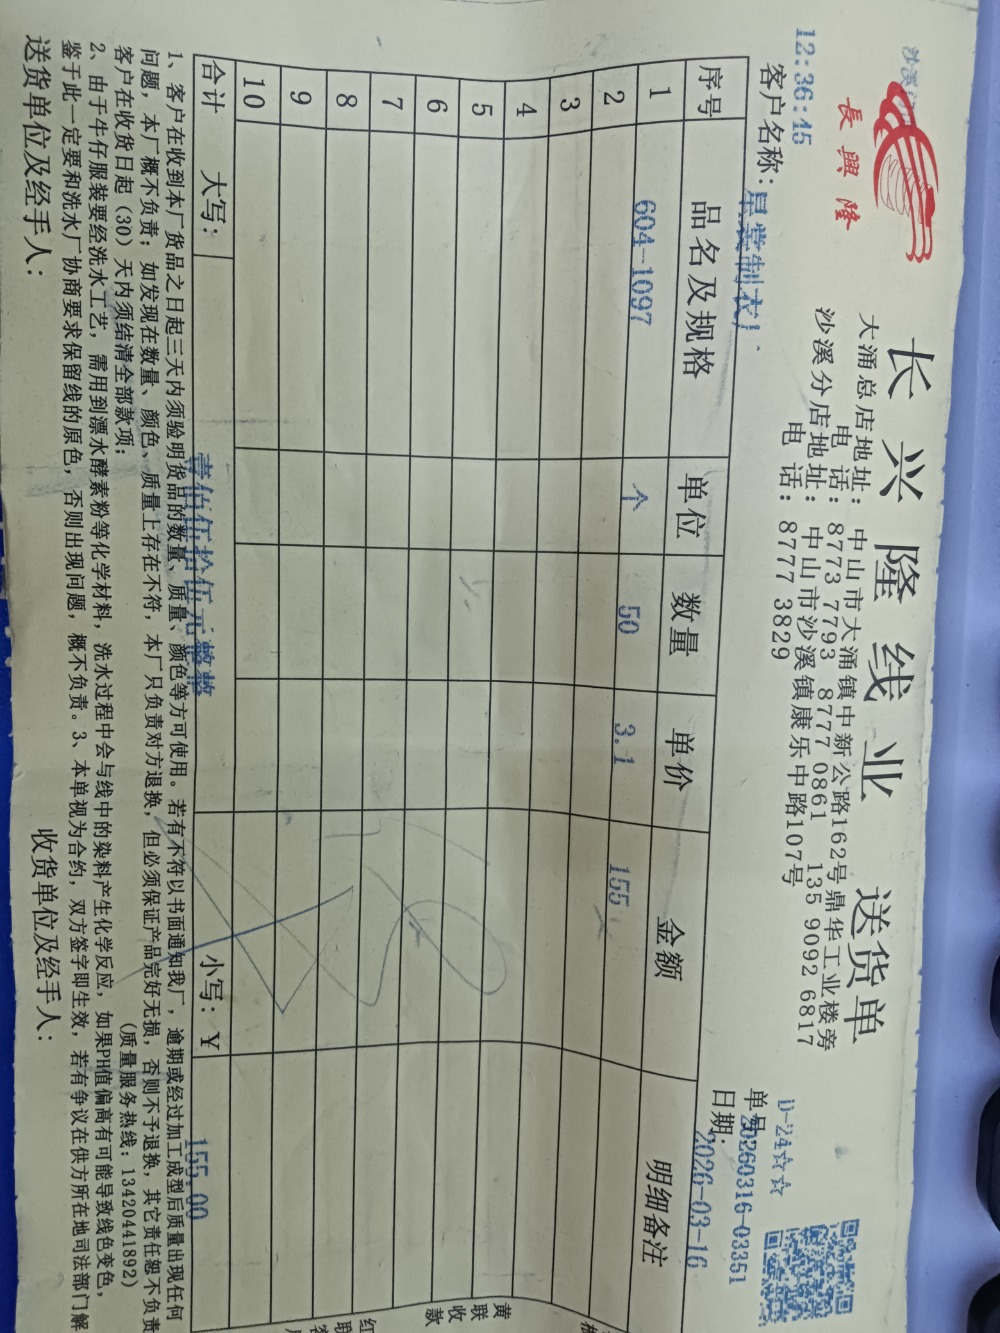 長興隆
长兴隆线业 送货单
大涌总店地址：中山市大涌镇中新公路162号鼎华工业楼旁
电话：8773 7793 8777 0861 135 9092 6817
沙溪分店地址：中山市沙溪镇康乐中路107号
电话：8777 3829
D-24☆☆
单号20260316-03351
日期：2026-03-16
12:36:45
客户名称：制衣厂
序号 品名及规格 单位 数量 单价 金额 明细备注
1 604-1097 个 50 3.1 155
2
3
4
5
6
7
8
9
10
合计 大写：壹佰伍拾伍元整 小写：￥155.00
1、客户在收到本厂货品之日起三天内须验明货品的数量、质量、颜色等方可使用。若有不符以书面通知我厂，逾期或经过加工成型后质量出现任何
问题，本厂概不负责；如发现在数量、颜色、质量上存在不符，本厂只负责对方退换，但必须保证产品完好无损，否则不予退换，其它责任恕不负责
客户在收货日起（30）天内须结清全部款项；
（质量服务热线：13420441892）
2、由于牛仔服装要经洗水工艺，需用到漂水酵素粉等化学材料，洗水过程中会与线中的染料产生化学反应，如果PH值偏高有可能导致线色变色，
鉴于此一定要和洗水厂协商要求保留线的原色，否则出现问题，概不负责。3、本单视为合约，双方签字即生效，若有争议在供方所在地司法部门解
送货单位及经手人： 收货单位及经手人：
黄联收款
红联